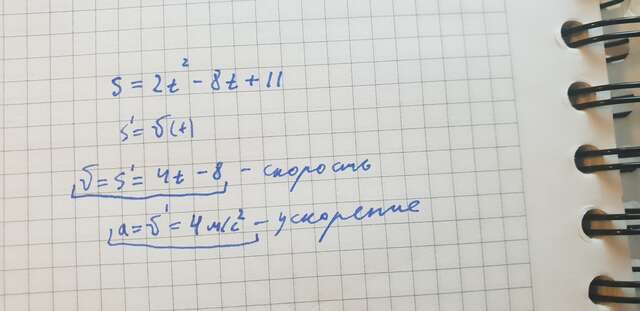 S = 2t² - 8t + 11
S' = V(t)
V = S' = 4t - 8 - скорость
a = V' = 4 м/с² - ускорение